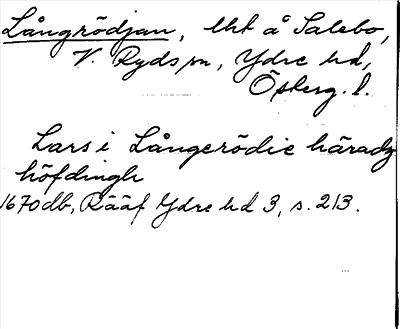 Långrödjan, lht å Salebo,
V. Ryds sn, Ydre hd,
Österg. l.
Lars i Långerödie häradz
höfdingh
1670 db, Rääf Ydre hd 3, s. 213.